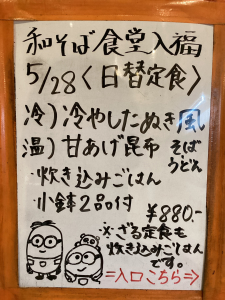 和そば食堂入福
5/28〈日替定食〉
冷）冷やしたぬき風
温）甘あげ昆布 そば うどん
・炊き込みごはん
・小鉢2品付
¥880.-
※ざる定食も
炊き込みごはん
です。
⇒入口こちら⇒